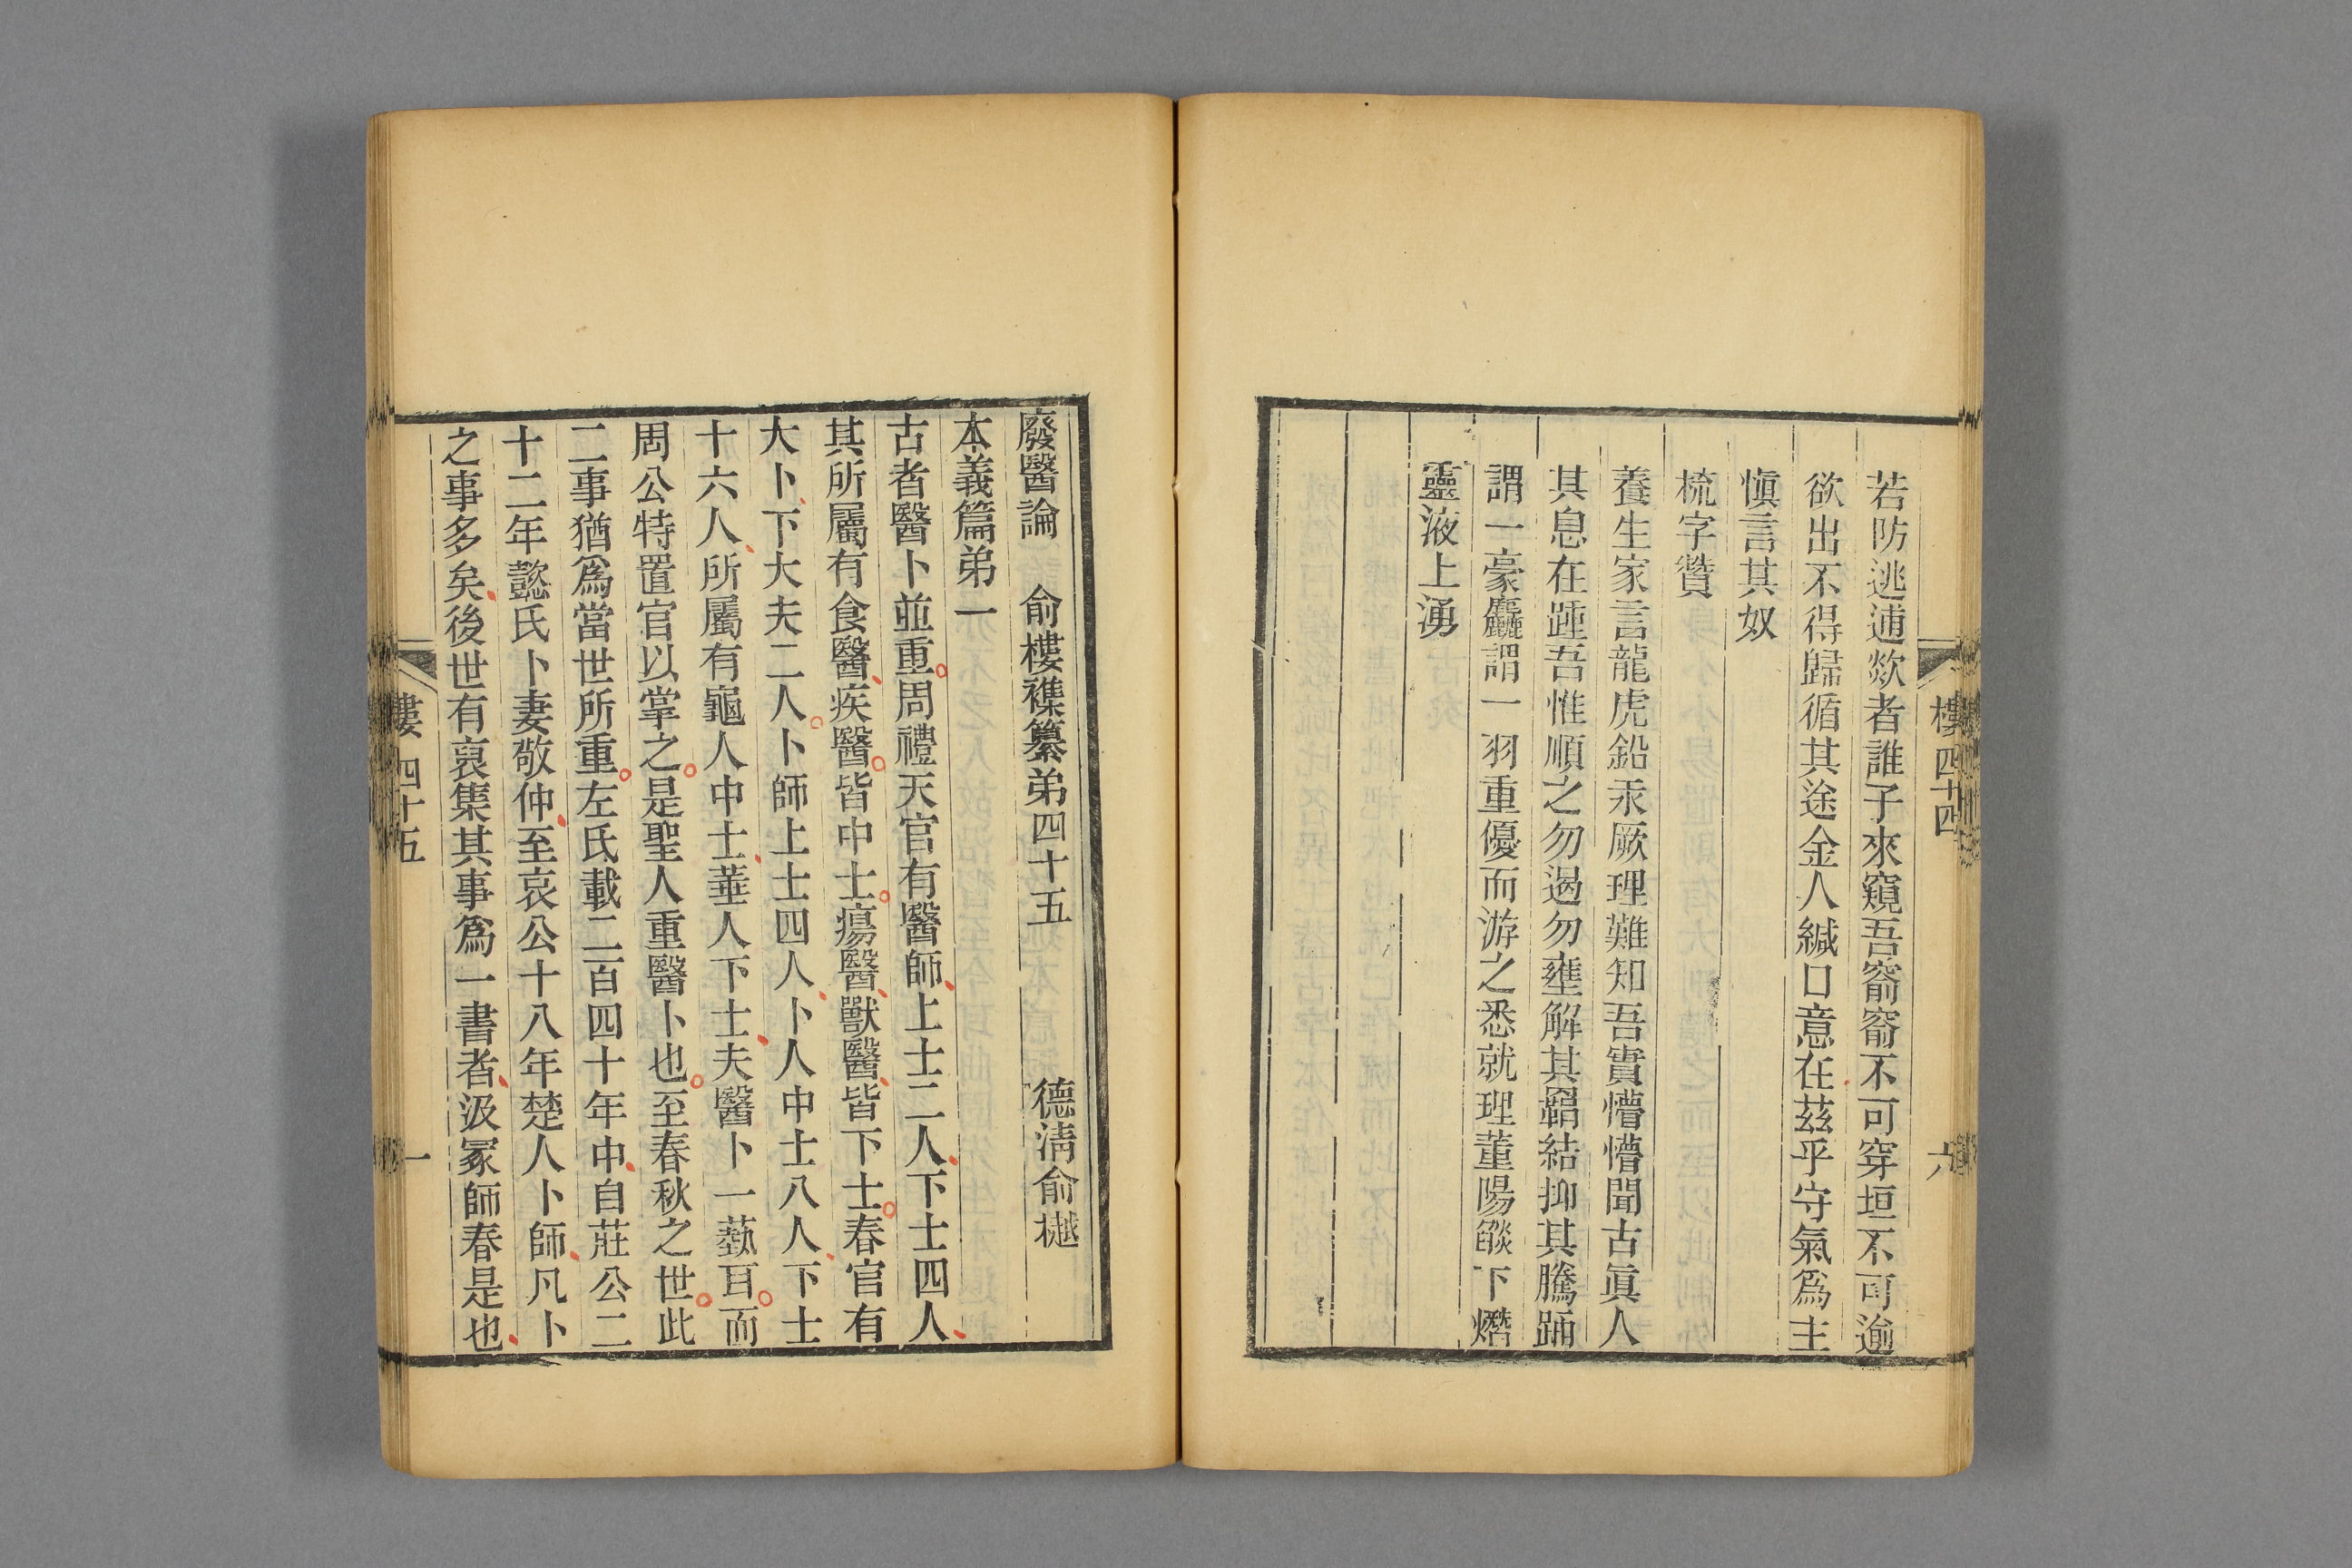 樓四十四
六
若防逃逋欸者誰子來窺吾窬窬不可穿垣不可逾
欲出不得歸循其途金人緘口意在茲乎守氣爲主
愼言其奴
梳字贊
養生家言龍虎鉛汞厥理難知吾實懵懵聞古眞人
其息在踵吾惟順之勿遏勿壅解其羂結抑其騰踊
謂一豪麤謂一羽重優而游之悉就理董陽燄下爩
靈液上湧
廢醫論 俞樓襍纂弟四十五 德淸俞樾
本義篇弟一
古者醫卜並重周禮天官有醫師上士二人下士四人
其所屬有食醫疾醫皆中士瘍醫獸醫皆下士春官有
大卜下大夫二人卜師上士四人卜人中士八人下士
十六人所屬有龜人中士菙人下士夫醫卜一蓺耳而
周公特置官以掌之是聖人重醫卜也至春秋之世此
二事猶爲當世所重左氏載二百四十年中自莊公二
十二年懿氏卜妻敬仲至哀公十八年楚人卜師凡卜
之事多矣後世有裒集其事爲一書者汲冢師春是也
樓 四十五
一